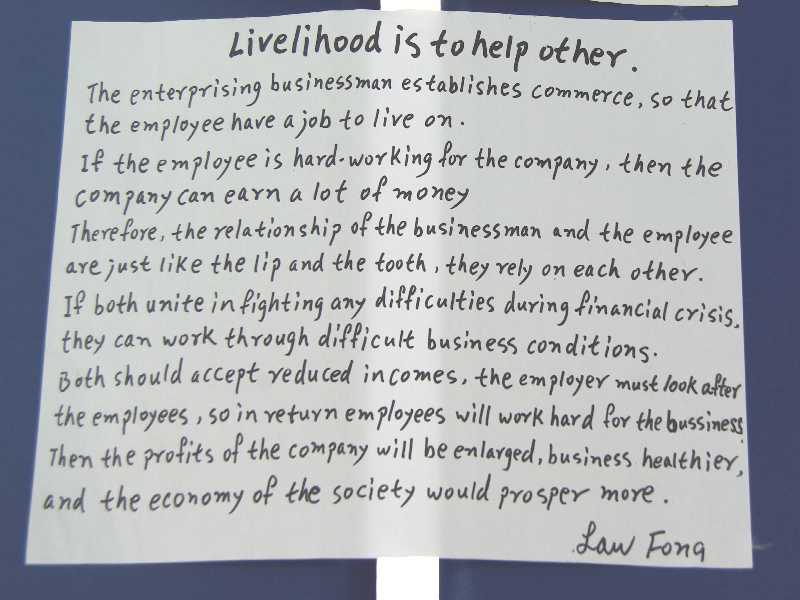 Livelihood is to help other.
The enterprising businessman establishes commerce, so that
the employee have a job to live on.
If the employee is hard-working for the company, then the
company can earn a lot of money
Therefore, the relationship of the businessman and the employee
are just like the lip and the tooth, they rely on each other.
If both unite in fighting any difficulties during financial crisis,
they can work through difficult business conditions.
Both should accept reduced incomes, the employer must look after
the employees, so in return employees will work hard for the bussiness.
Then the profits of the company will be enlarged, business healthier,
and the economy of the society would prosper more.
Law Fong